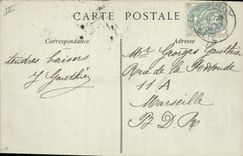 III
CARTE POSTALE
Correspondance
tendres baisers
Y Gauthier
Mr Georges Gauthier
Rue de la Rotonde
11 A
Marseille
B D R